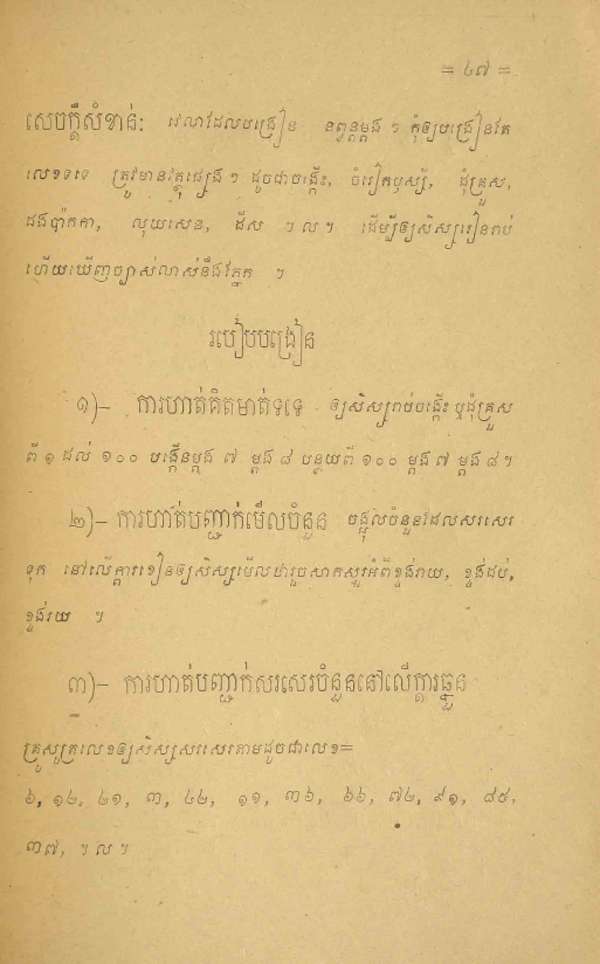 = ៤៧ =
សេចក្ដីសំខាន់: វេលាដែលបង្រៀន នព្វន្តម្ដង ៗ កុំឲ្យបង្រៀនតែ
លេខទទេ ត្រូវមានវត្ថុផ្សេង ៗ ដូចជាចង្កើះ, ចំរៀកឫស្សី, ដុំគ្រួស,
ដងប៉ាកកា, លុយសេន, ដីស ។ល។ ដើម្បីឲ្យសិស្សរៀនរាប់
ហើយឃើញច្បាស់លាស់នឹងភ្នែក ។
របៀបបង្រៀន
១)– ការហាត់គិតមាត់ទទេ ឲ្យសិស្សរាប់ចង្កើះ ឬដុំគ្រួស
ពី ១ ដល់ ១០០ បង្កើនម្ដង ៧ ម្ដង ៨ បន្ថយពី ១០០ ម្ដង ៧ ម្ដង ៨ ។
២)– ការហាត់បញ្ជាក់មើលចំនួន ចង្អុលចំនួនដែលសរសេរ
ទុក នៅលើក្ដារខៀនឲ្យសិស្សមើលថារួចសាកសួរអំពីខ្ទង់រាយ, ខ្ទង់ដប់,
ខ្ទង់រយ ។
៣)– ការហាត់បញ្ជាក់សរសេរចំនួននៅលើក្ដារឆ្នួន
គ្រូសូត្រលេខឲ្យសិស្សសរសេរតាមដូចជាលេខ=
៦, ១៤, ៤១, ៣, ៤៤, ១១, ៣៦, ៦៦, ៧៤, ៩១, ៨៥,
៣៧, ។ល។